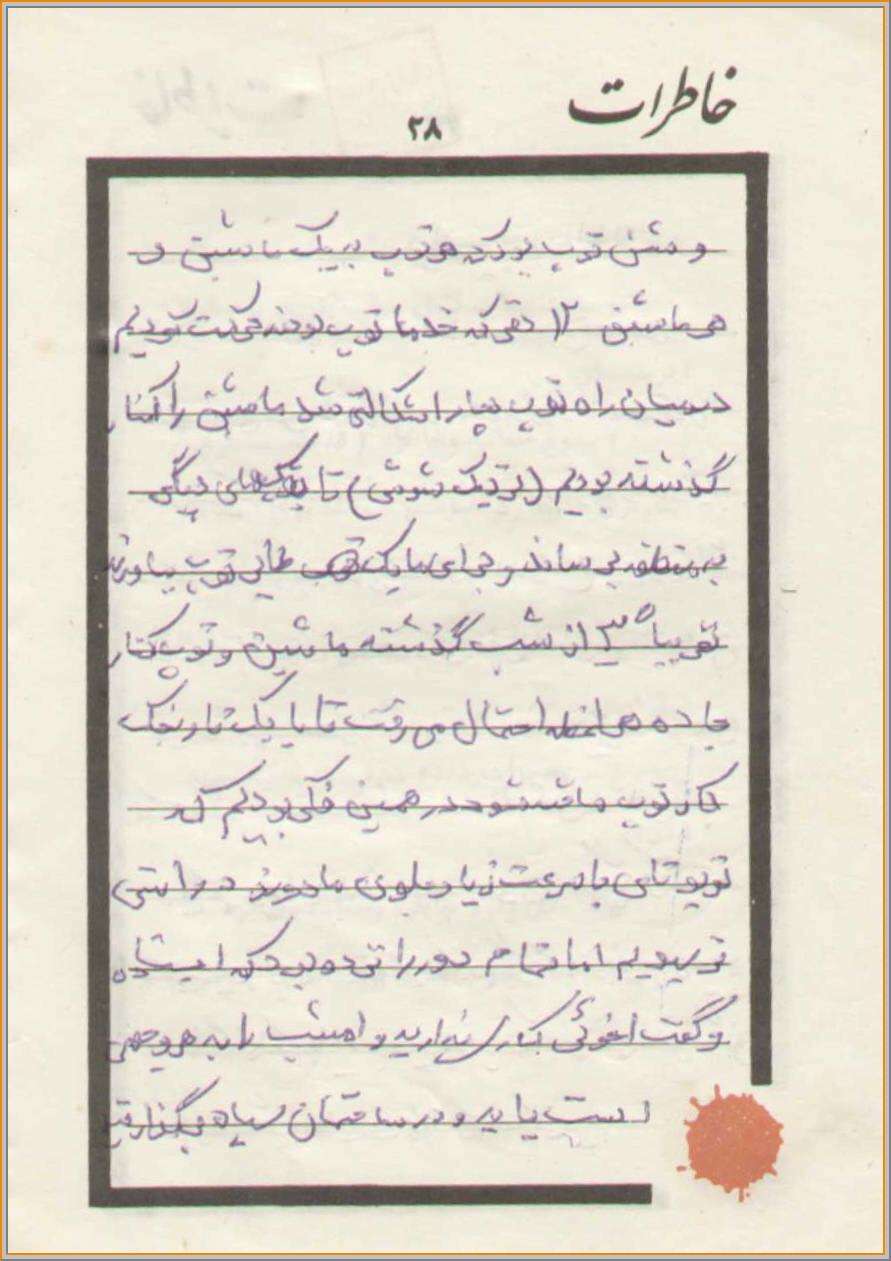 خاطرات
۲۸
و مشن توپ بود که هر توپ به یک ماشین و
هر ماشین ۱۲ نفر که خدمه توپ بودند حرکت کردیم
در میان راه توپ دچار اشکالی شد ماشین را کنار
گذشته بودیم (نزدیک شوش) تا یدکهای دیگر
به منطقه برساند و برای ما یک قطب نمای توپ بیاورند
تقریبا ۳۰ از شب گذشته ماشین و توپ کنار
جاده هر لحظه احتمال می رفت تا با یک نارنجک
کار توپ ما در همین فکر بودیم که
تویوتای با سرعت زیاد جلوی ما دور زد در راستی
ترسیدیم اما تمام دور را نزده بود که ایستاده
و گفت اخوئی کاری ندارید و امشب را به هر وجهی
است باید در ساختمان سپاه بگذارید